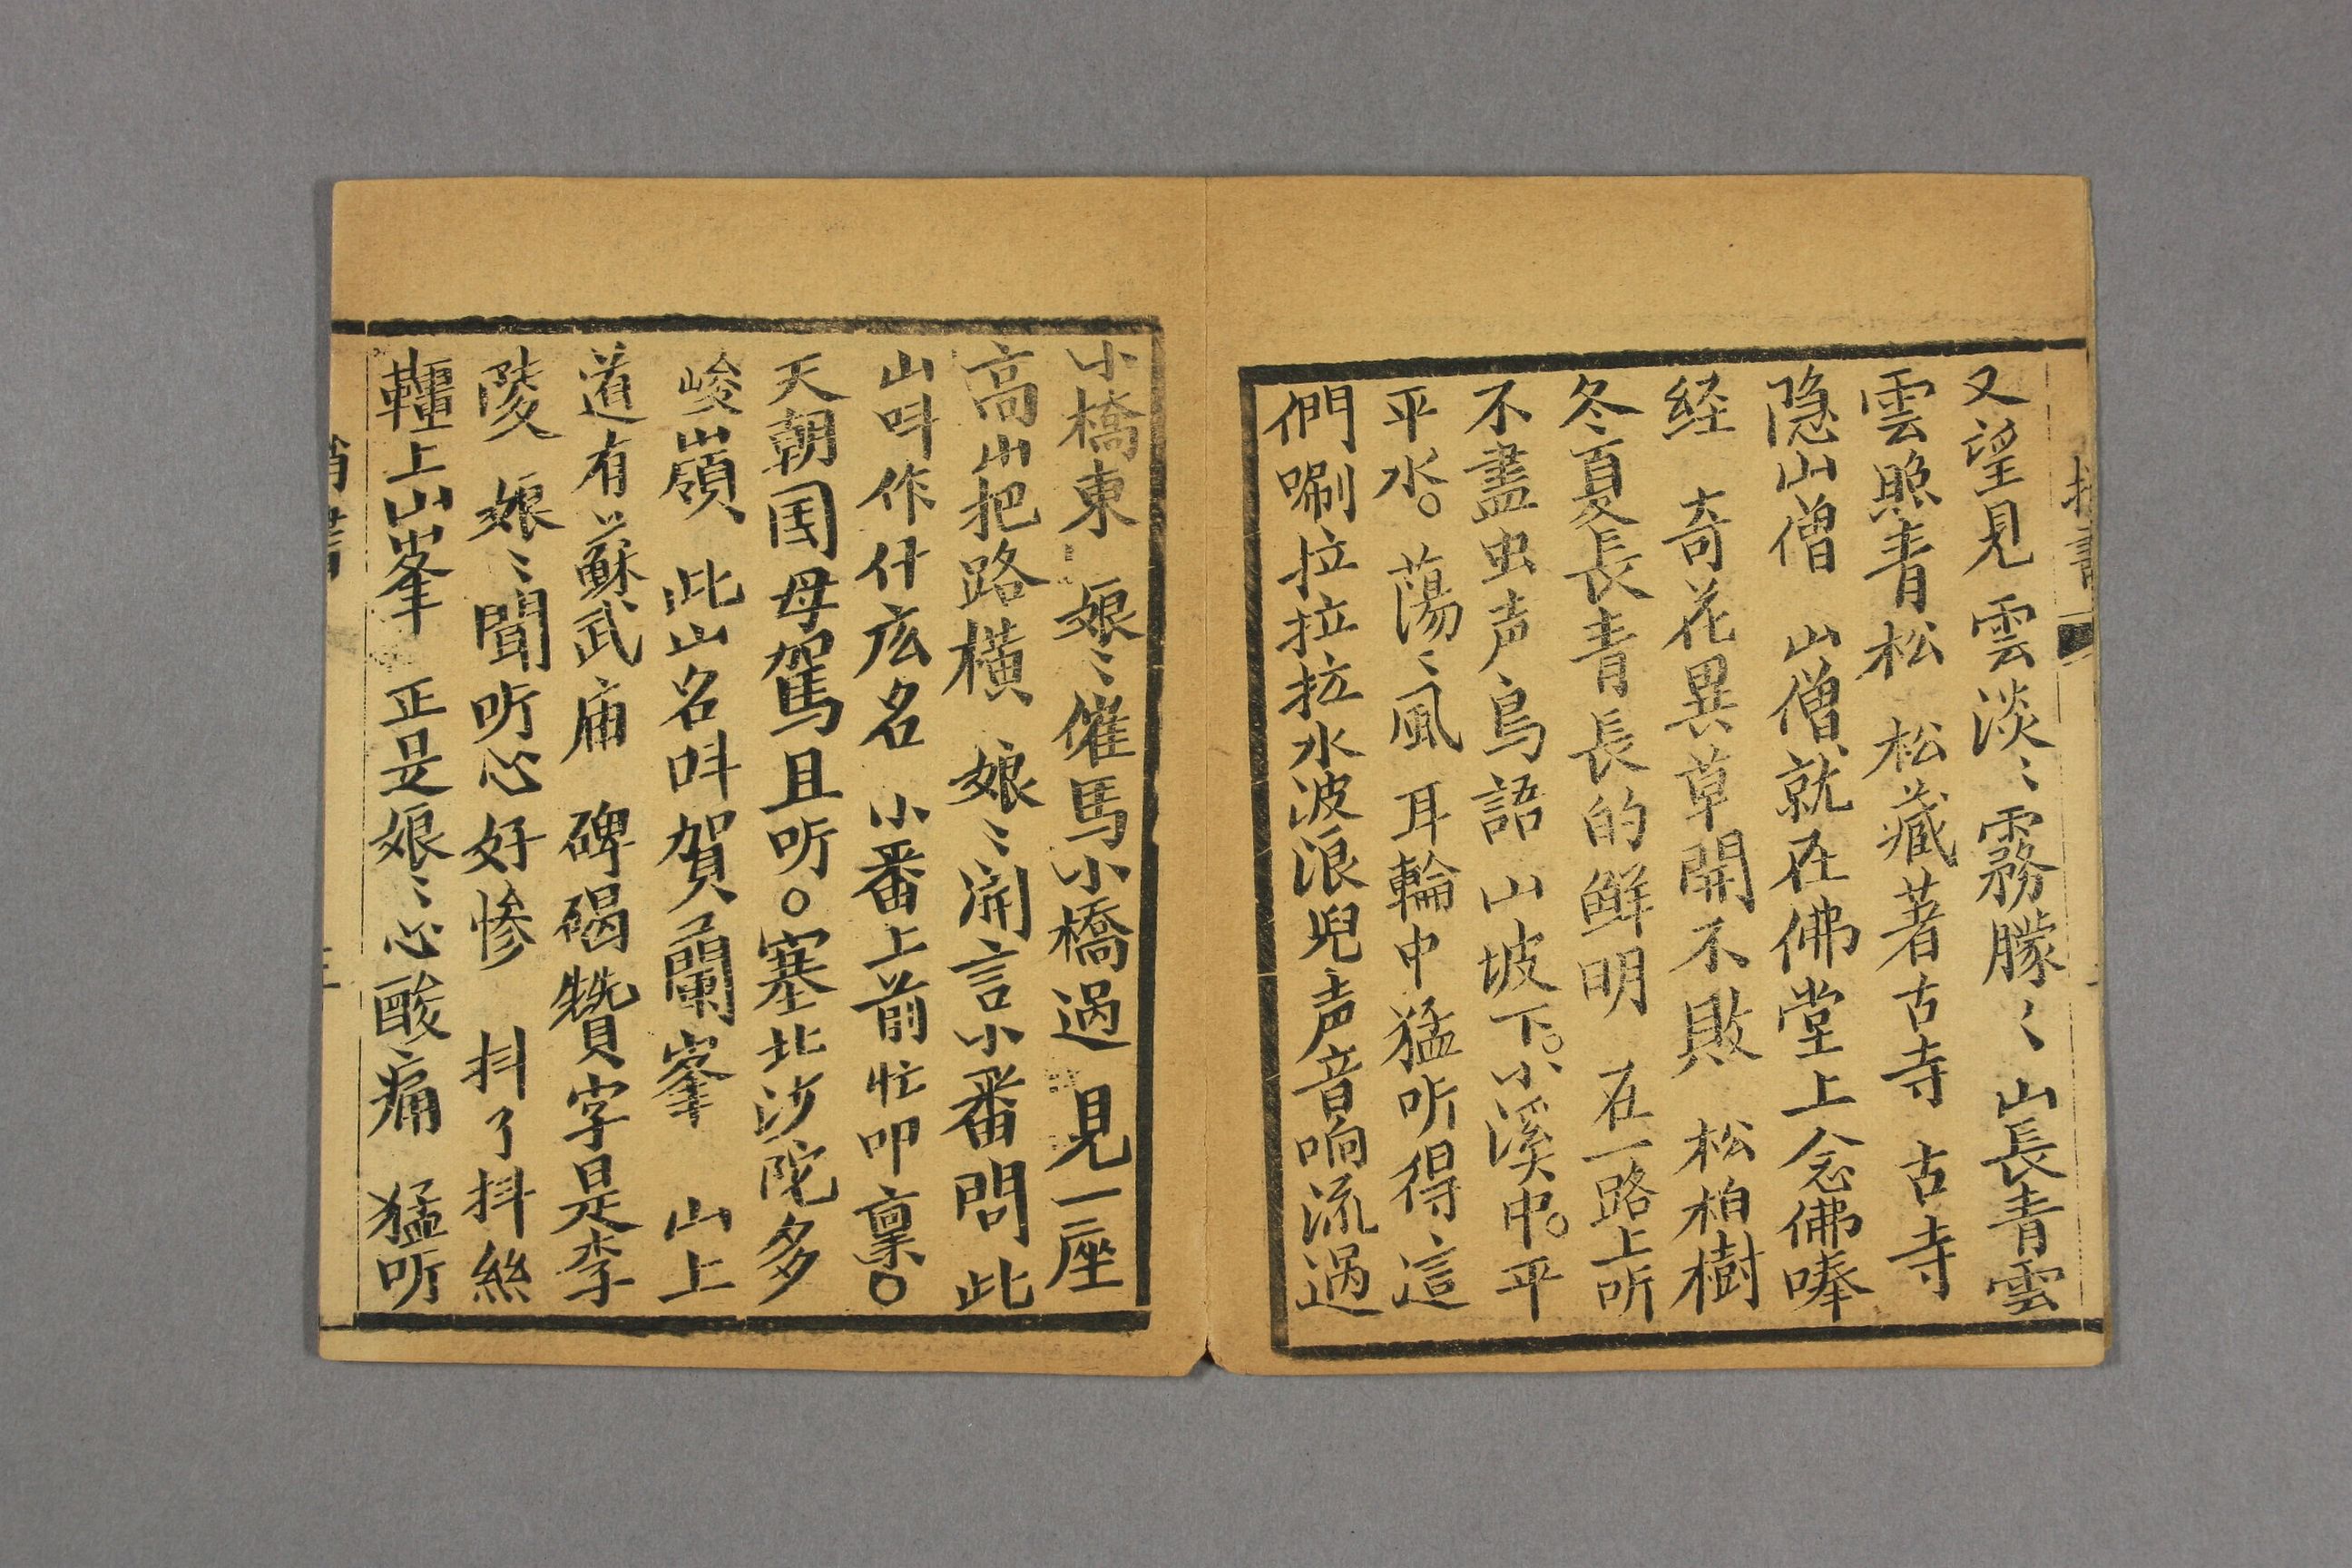 又望見 雲淡〻霧朦〻 山長青雲
雲照青松 松藏著古寺 古寺
隐山僧 山僧就在佛堂上念佛唪
经 奇花異草開不敗 松柏樹
冬夏長青長的鲜明 在一路上听
不盡虫声鳥語 山坡下。小溪中。平
平水。蕩〻風 耳輪中猛听得這
們唰拉拉拉水波浪兒声音响流过
小橋東 娘〻催馬小橋過 見一座
高山把路横 娘〻開言小番問 此
山叫作什庅名 小番上前忙叩禀。
天朝国母駕且听。塞北沙陀多
峻嶺 此山名叫賀蘭峯 山上
道有蘇武庙 碑碣贊字是李
陵 娘〻聞听心好惨 抖了抖絲
韁上山峯 正是娘〻心酸痛 猛听